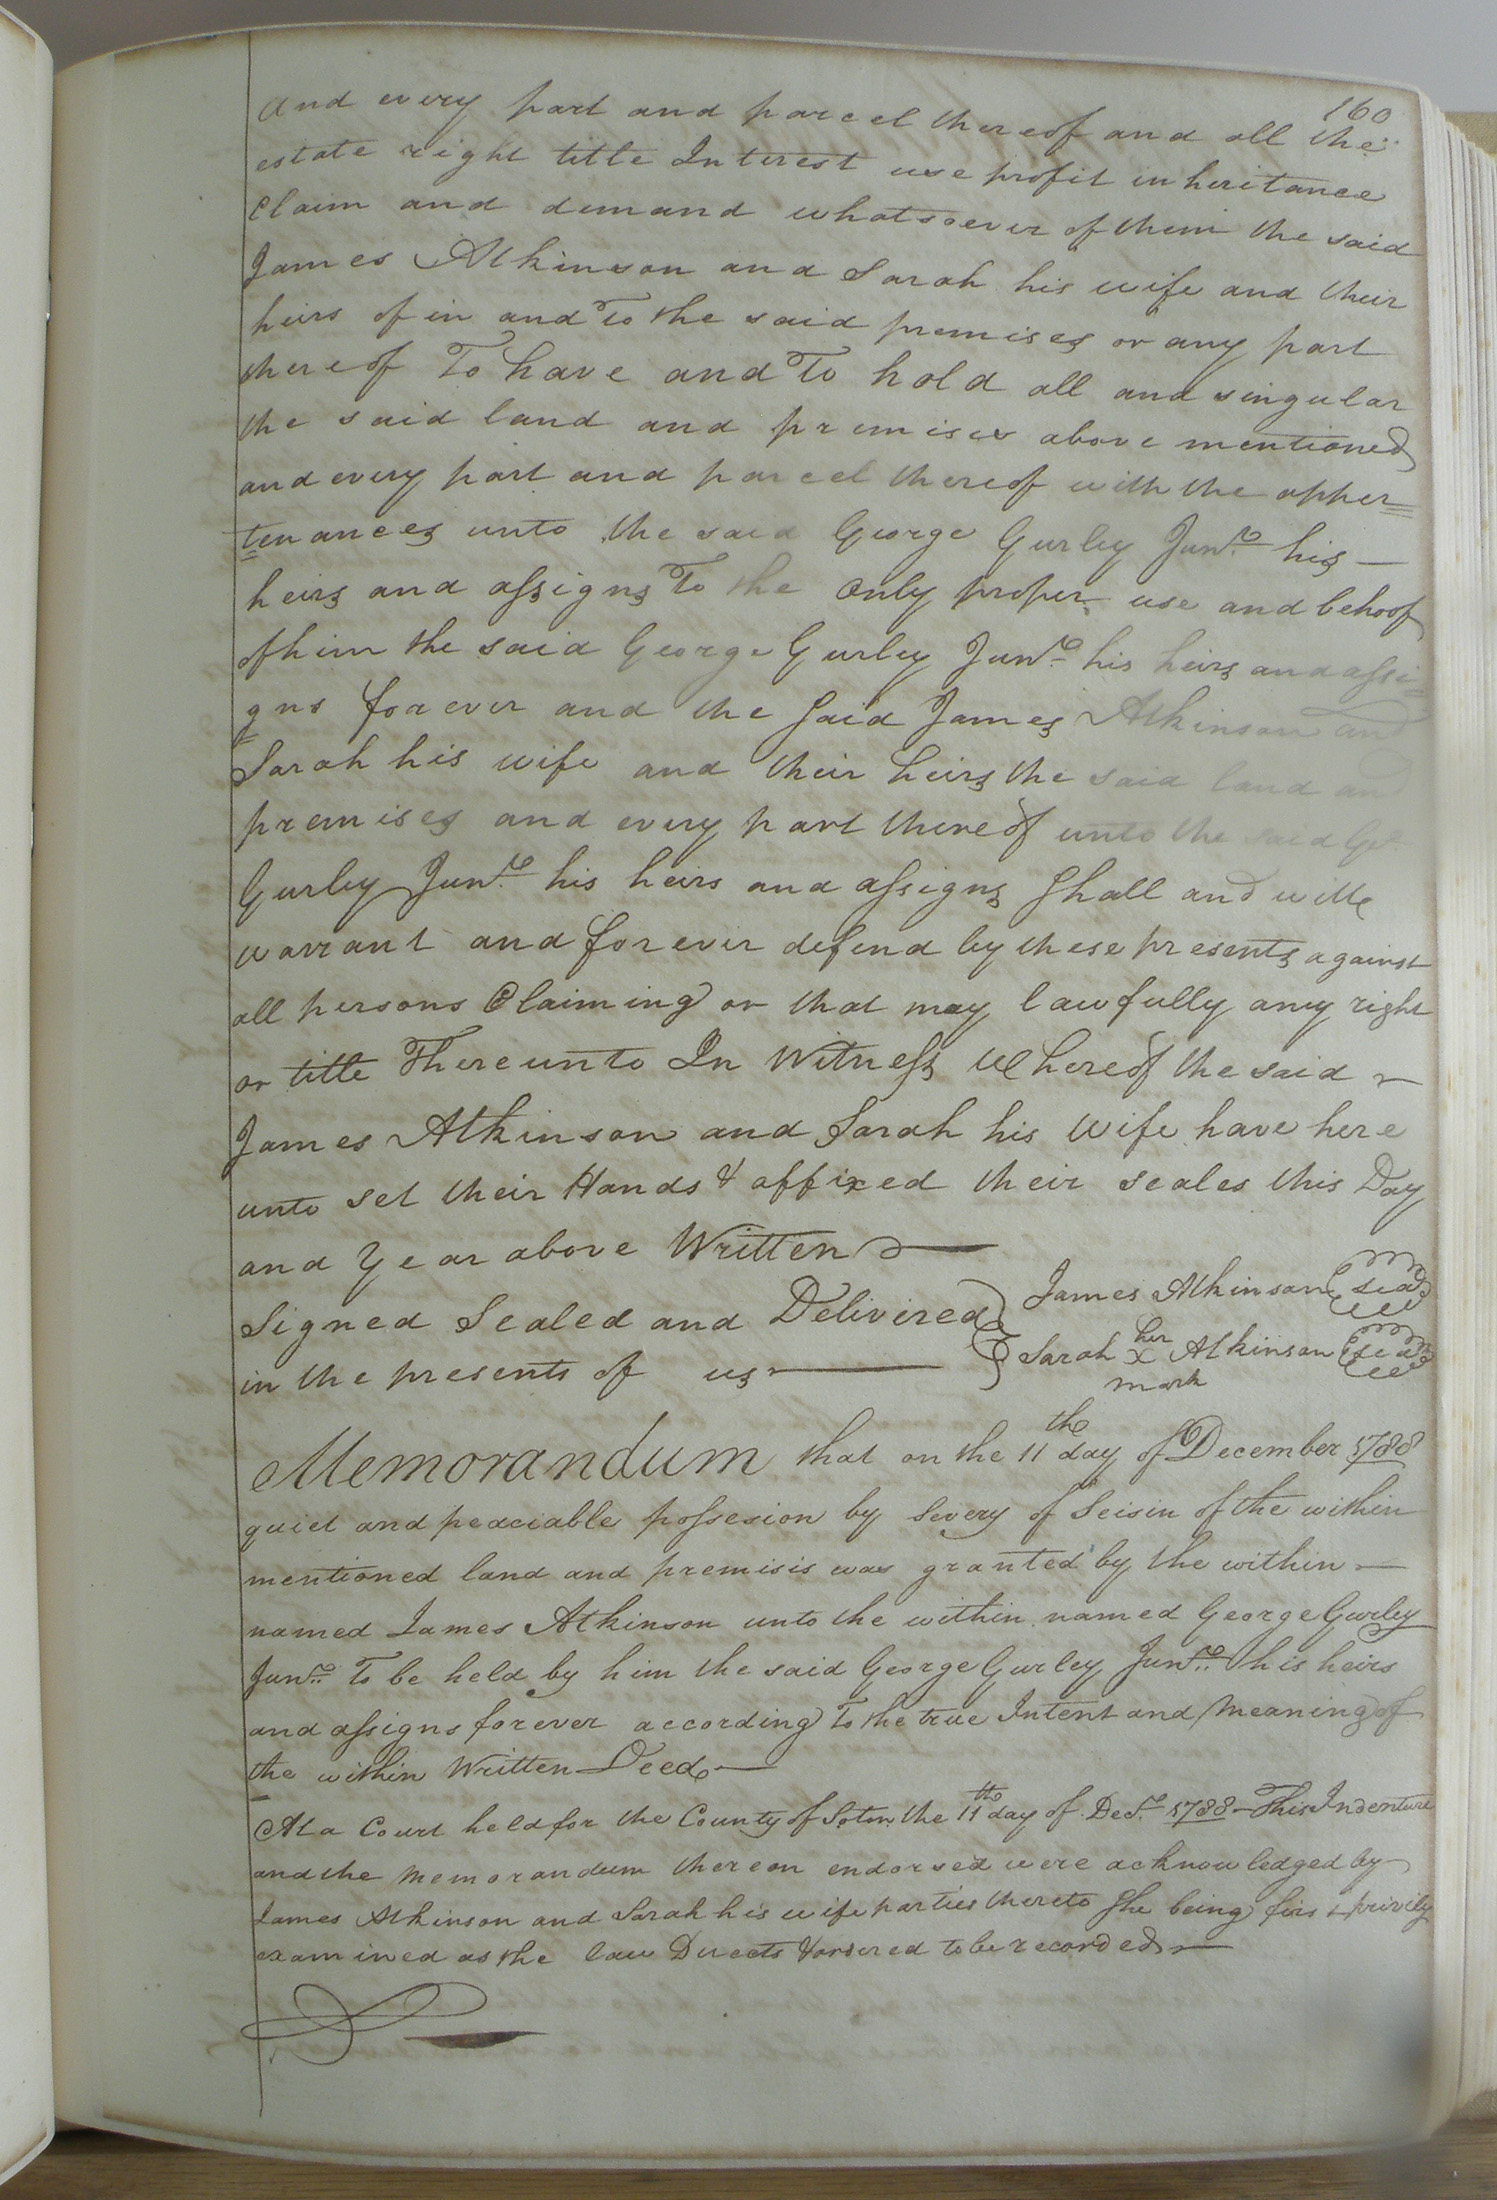 160
And every part and parcel thereof and all the
estate right title Interest use profit inheritance
Claim and demand whatsoever of them the said
James Atkinson and Sarah his wife and their
heirs of in and To the said premises or any part
thereof To have and To hold all and singular
the said land and premises above mentioned
and every part and parcel thereof with the apper=
=tenances unto the said George Gurley Junr. his —
heirs and assigns To the Only proper use and behoof
of him the said George Gurley Junr. his heirs and assi=
=gns forever and the said James Atkinson and
Sarah his wife and their heirs the said land and
premises and every part thereof unto the said
Gurley Junr. his heirs and assigns shall and will
warrant and forever defend by these presents against
all persons Claiming or that may lawfully any right
or title Thereunto In Witness Whereof the said
James Atkinson and Sarah his Wife have here
unto set their Hands & affixed their seales this Day
and Year above Written —
Signed Sealed and Delivired } James Atkinson seal
in the presents of us — } Sarah her X mark Atkinson seal
Memorandum that on the 11th day of December 1788
quiet and peaciable possesion by severy of Seisin of the within
mentioned land and premisis was granted by the within —
named James Atkinson unto the within named George Gurley
Junr. To be held by him the said George Gurley Junr. his heirs
and assigns forever according To the true Intent and Meaning of
the within Written Deed —
At a Court held for the County of Soton the 11th day of Decr. 1788 — This Indenture
and the Memorandum thereon endorsed were acknowledged by
James Atkinson and Sarah his wife parties thereto she being first privily
examined as the law Directs & ordered to be recorded —